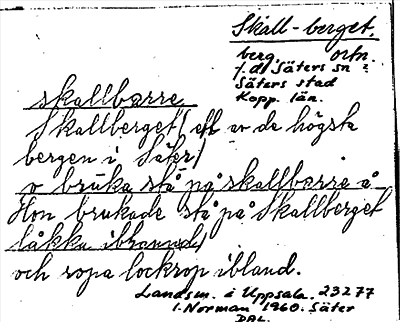 Skall-berget.
berg. ortn.
f.d. Säters sn =
Säters stad
Kopp. län.
skallbärre
Skallberget (ett av de högsta
bergen i Säter)
o bruka stå på skallbärre å
Hon brukade stå på Skallberget
låkka ibland
och ropa lockrop ibland.
Landsm. i Uppsala. 23277
I. Norman 1960. Säter
DAL.